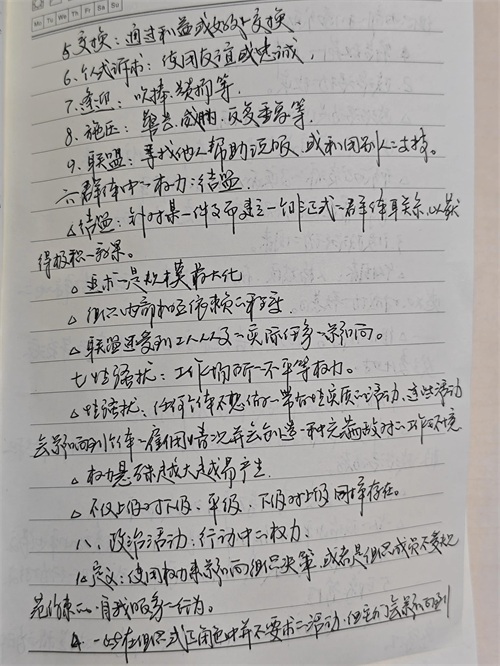 Mo Tu We Th Fr Sa Su
5.交换：通过利益或好处交换
6.个人式诉求：使用友谊或忠诚，
7.逢迎：吹捧、赞扬等，
8.施压：警告、威胁、反复要求等，
9.联盟：寻找他人帮助说服，或利用别人二支持。
六、群体中二权力：结盟
△结盟：针对某一件事而建立一个非正式二群体联系，以获
得积极二效果。
△追求二是规模最大化
△组织内部相互依赖二程度
△联盟还受到工人人及二实际任务二影响。
七、性骚扰：工作场所二不平等权力。
△性骚扰：任何个体不想做二带有性实质二活动，这些活动
会影响到个体二雇佣情况并会创造一种充满敌对二工作环境
△权力悬殊越大越易产生
△不仅上级对下级、平级、下级对上级同样存在。
八、政治活动：行动中二权力：
△定义：使用权力来影响组织决策，或者是组织成员不受规
范约束二自我服务二行为。
△一些在组织正式角色中并不要求二活动，但它们会影响到